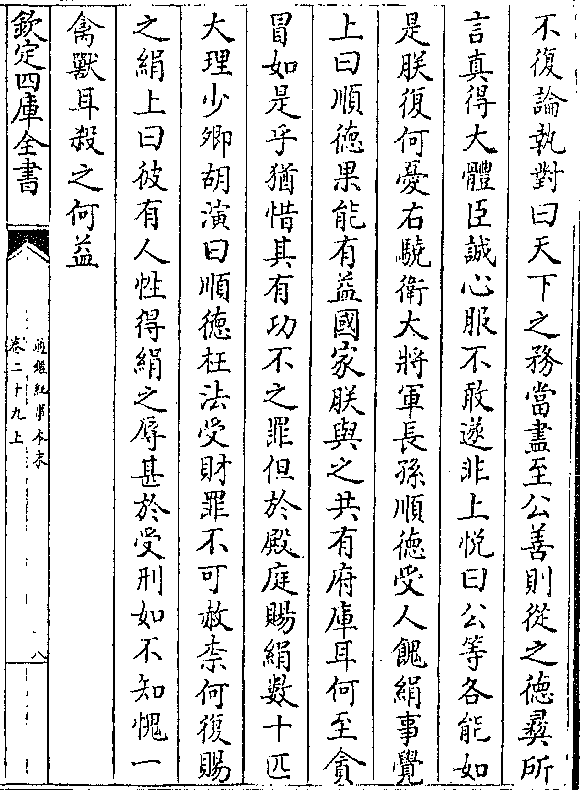 不復論執對曰天下之務當盡至公善則從之德彝所
言真得大體臣誠心服不敢遂非上悦曰公等各能如
是朕復何憂右驍衛大將軍長孫順德受人餽絹事覺
上曰順德果能有益國家朕與之共有府庫耳何至貪
冒如是乎猶惜其有功不之罪但於殿庭賜絹數十匹
大理少卿胡演曰順德枉法受財罪不可赦柰何復賜
之絹上曰彼有人性得絹之辱甚於受刑如不知愧一
禽獸耳殺之何益
欽定四庫全書
通鑑紀事本末
卷二十九上
八